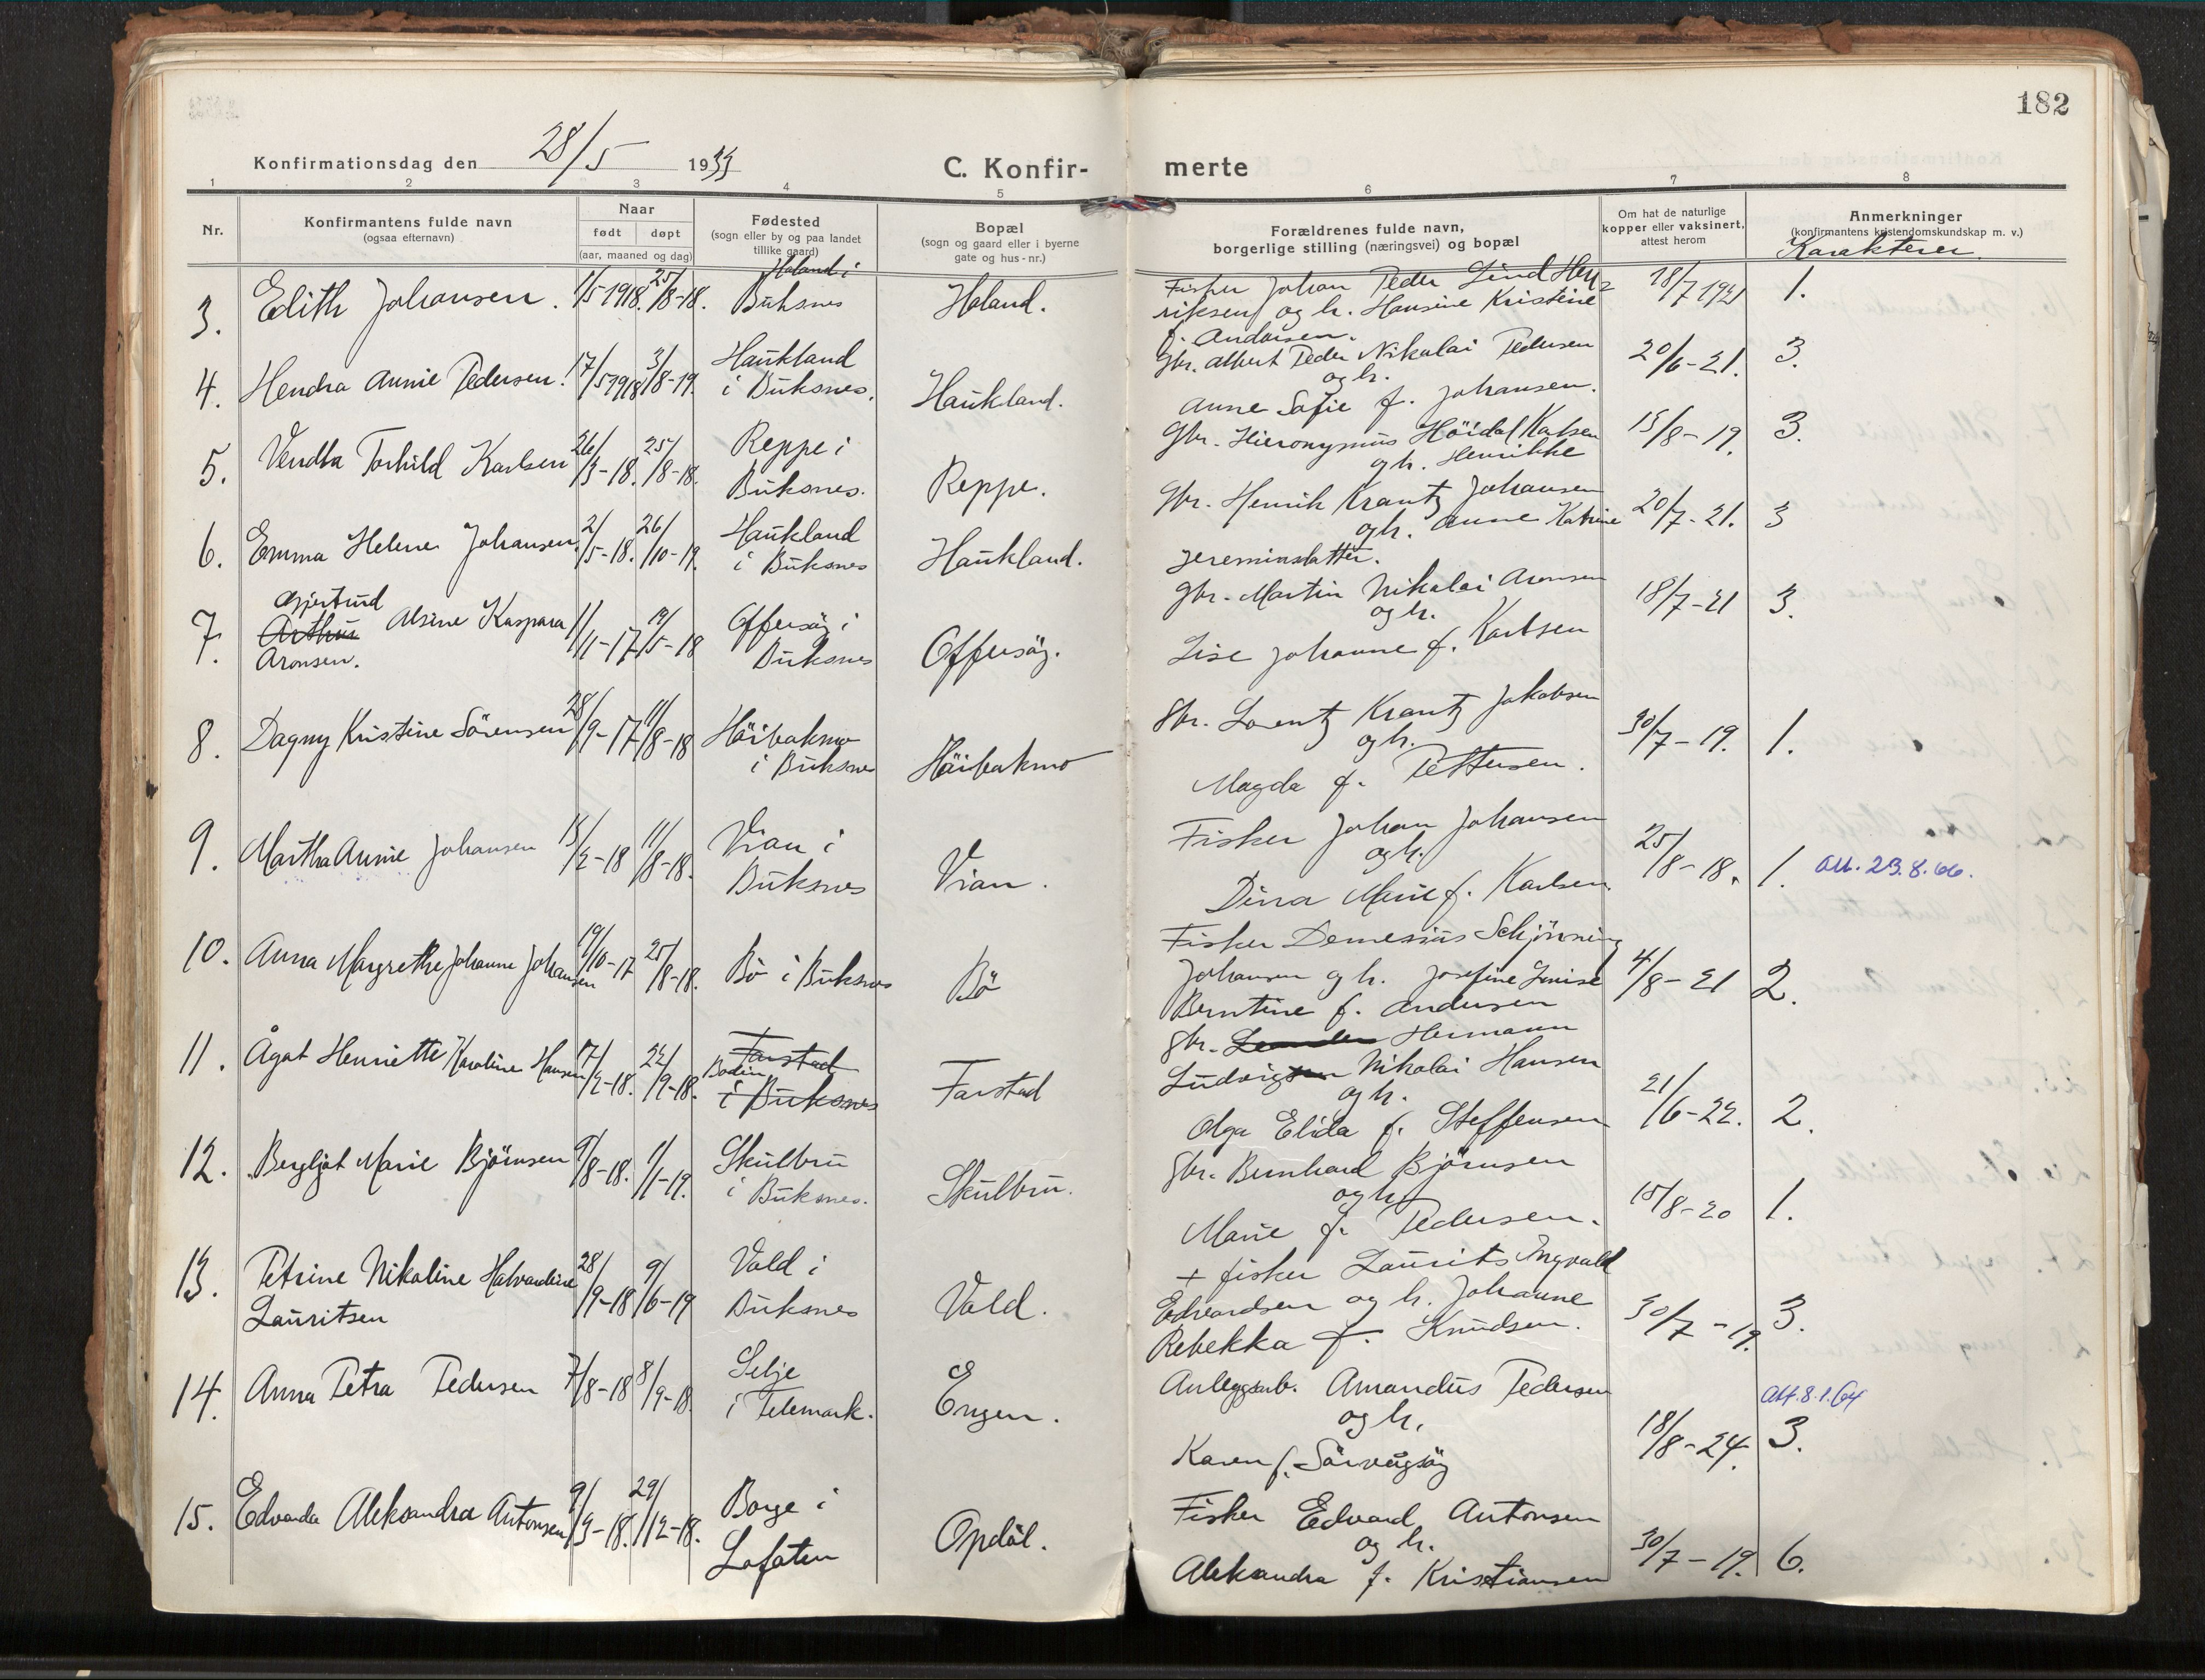 182
Konfirmationsdag den 28/5 1933
C. Konfir-
merte
1 2 3 4 5 6 7 8
Nr.
Konfirmantens fulde navn
(ogsaa efternavn)
Naar
født døpt
(aar, maaned og dag)
Fødested
(sogn eller by og paa landet
tillike gaard)
Bopæl
(sogn og gaard eller i byerne
gate og hus-nr.)
Forældrenes fulde navn,
borgerlige stilling (næringsvei) og bopæl
Om hat de naturlige
kopper eller vaksinert,
attest herom
Anmerkninger
(konfirmantens kristendomskundskap m. v.)
Karakterer.
3. Edith Johansen. 1/5 1918. 25/8-18.
Holand i
Buksnes
Holand.
Fisker Johan Peder Lind Hen-
riksen og h. Hansine Kristine
f. Andersen.
18/7 1921
1.
4. Hendra Annie Pedersen. 17/5 1918 3/8-19.
Haukland
i Buksnes.
Haukland.
Gbr. Albert Peder Nikolai Pedersen
og h.
Anne Sofie f. Johansen.
20/6-21.
3.
5. Vendla Torhild Karlsen 26/3-18. 25/8-18.
Reppe i
Buksnes.
Reppe.
Gbr. Hieronymus Höidal Karlsen
og h. Henrikke
15/8-19.
3.
6. Emma Helene Johansen. 2/5-18. 26/10-19.
Haukland
i Buksnes
Haukland.
Gbr. Henrik Krantz Johansen
og h. Anne Katrine
Jeremiasdatter.
20/7-21.
3
7. Gjertrud
Arthur Alsine Kaspara
Aronsen.
1/11-17 19/5-18
Offersöy i
Buksnes
Offersöy.
Gbr. Martin Nikolai Aronsen
og h.
Lise Johanne f. Karlsen
18/7-21
3.
8. Dagny Kristine Sörensen 28/9-17 11/8-18
Höibakmo
i Buksnes
Höibakmo
Gbr. Lorentz Krantz Jakobsen
og h.
Magda f. Pettersen.
30/7-19.
1.
9. Martha Annie Johansen 15/2-18 11/8-18.
Vian i
Buksnes
Vian.
Fisker Johan Johansen
og h.
Dina Marie f. Karlsen.
25/8-18.
1. Att. 23.8.66.
10. Anna Margrethe Johanne Johansen 19/10-17 25/8-18.
Bö i Buksnes
Bö
Fisker Demesius Schjönning
Johansen og h. Josefine Lovise
Berntine f. Andersen
4/8-21
2.
11. Ågot Henriette Karoline Hansen 17/2-18. 22/9-18.
Farstad
Bodin
i Buksnes
Farstad
Gbr. Hermann
Ludvig Nikolai Hansen
og h.
Olga Elida f. Steffensen
21/6-22.
2.
12. Bergljot Marie Björnsen 9/8-18. 1/1-19.
Skulbru
i Buksnes.
Skulbru.
Gbr. Bernhard Björnsen
og h.
Marie f. Pedersen.
15/8-20
1.
13. Petrine Nikoline Halvardine
Lauritsen
28/9-18 9/6-19
Vold i
Buksnes
Vold.
+ fisker Laurits Ingvald
Edvardsen og h. Johanne
Rebekka f. Knudsen.
30/7-19.
3.
14. Anna Petra Pedersen 7/8-18 8/9-18.
Selje
i Telemark.
Engen.
Anleggsarb. Amandus Pedersen
og h.
Karen f. Sörvågsöy
18/8-24.
Att. 8.1.64
3.
15. Edvarda Aleksandra Antonsen 9/3-18. 29/12-18.
Borge i
Lofoten
Opdöl.
Fisker Edvard Antonsen
og h.
Aleksandra f. Kristiansen
30/7-19.
6.